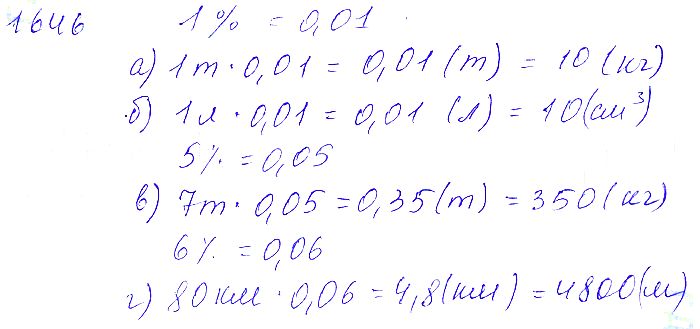 1646 1% = 0,01.
а) 1т · 0,01 = 0,01 (т) = 10 (кг)
б) 1л · 0,01 = 0,01 (л) = 10 (см³)
5% = 0,05
в) 7т · 0,05 = 0,35 (т) = 350 (кг)
6% = 0,06
г) 80 км · 0,06 = 4,8 (км) = 4800 (м)